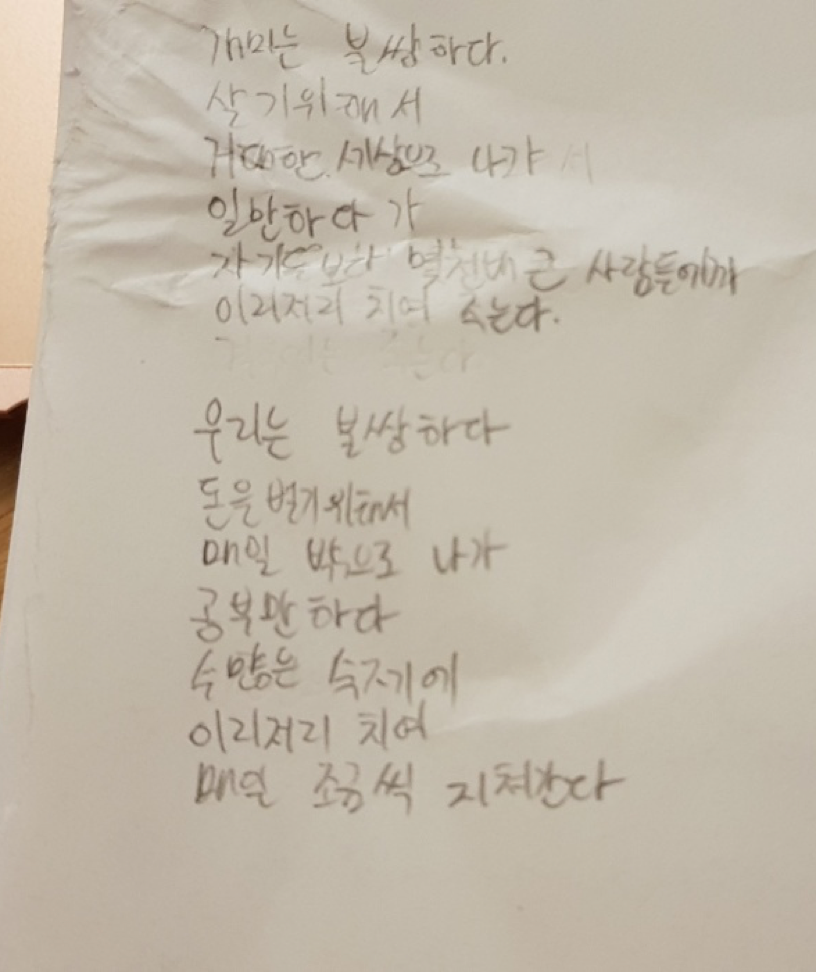 개미는 불쌍하다.
살기위해서
거대한 세상으로 나가서
일만하다가
자기들보다 몇천배 큰 사람들에게
이리저리 치여 죽는다.
죽는다
우리는 불쌍하다
돈을벌기위해서
매일 밖으로 나가
공부만하다
수많은 숙제에
이리저리 치여
매일 조금씩 지쳐간다